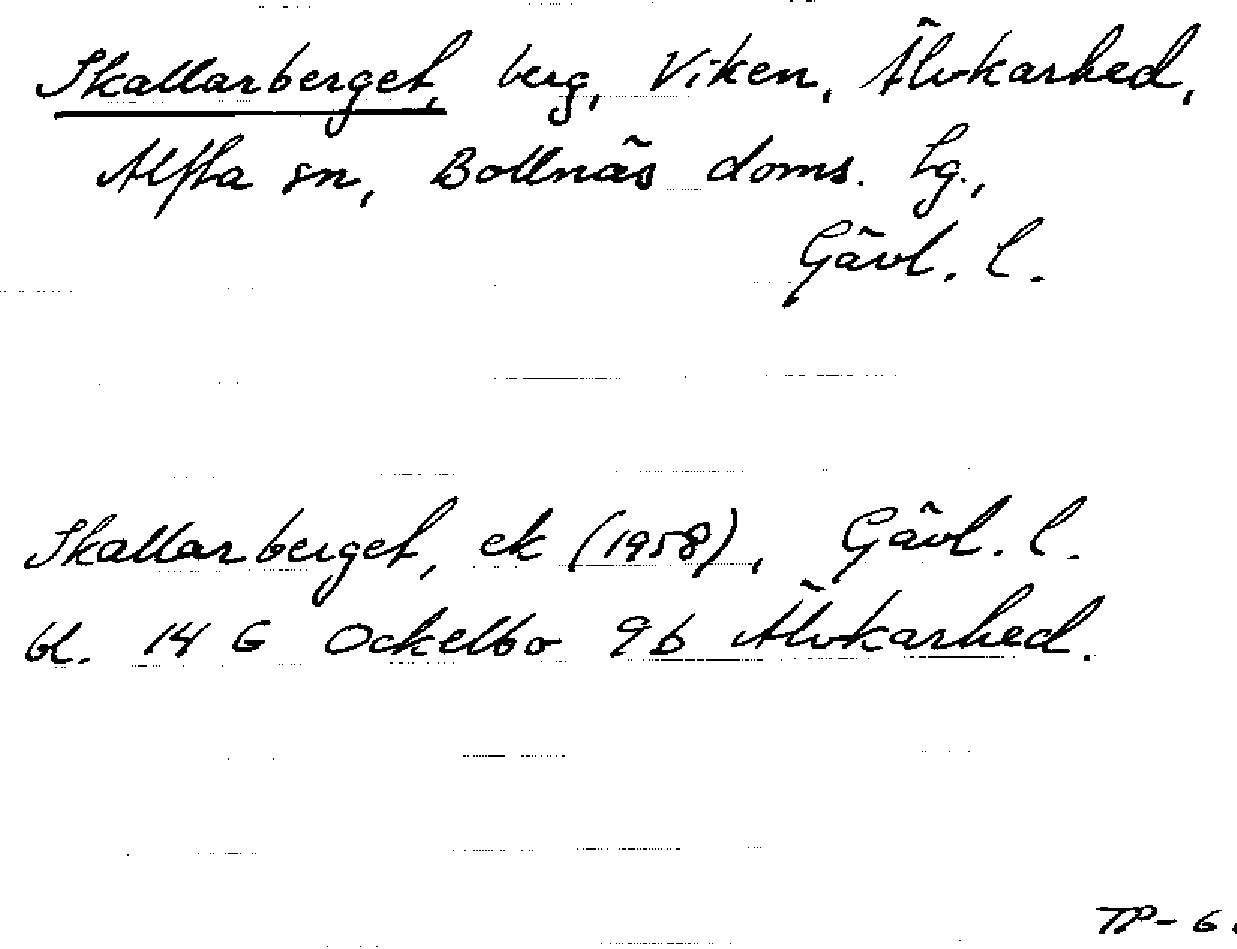 Skallarberget, berg, Viken, Älvkarhed,
Alfta sn, Bollnäs doms. Lg.,
Gävl. l.
Skallarberget, ek (1958), Gävl. l.
bl. 14 G Ockelbo 9b Älvkarhed.
TP-6.